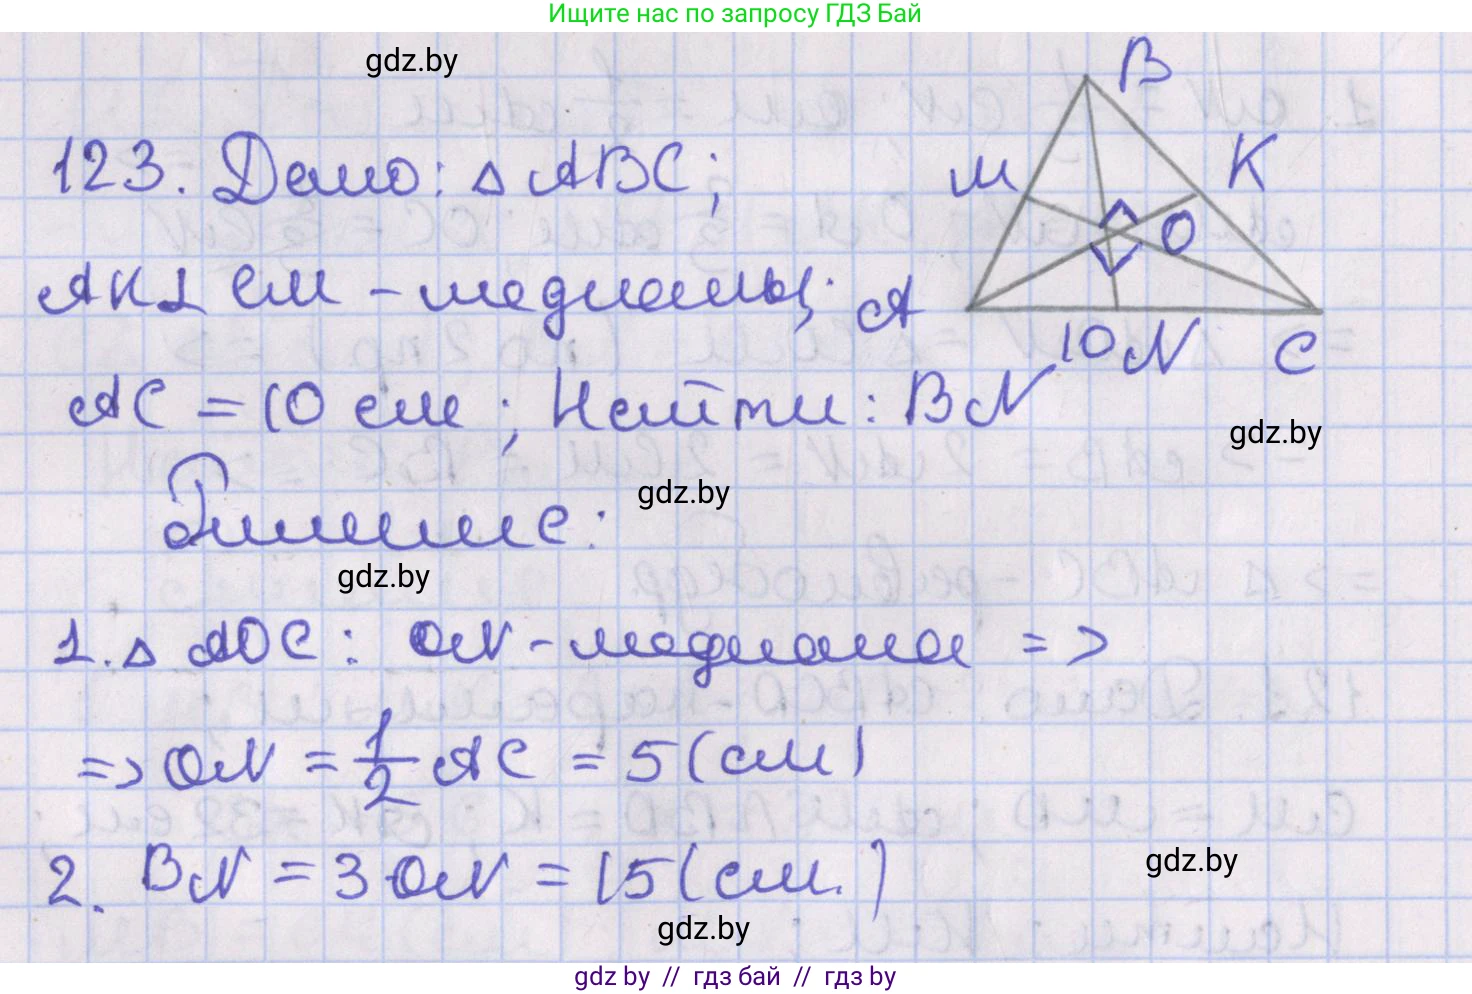 Ищите нас по запросу ГДЗ Бай
gdz.by
B
123. Дано: △ ABC;
M
K
O
AK ⊥ CM - медианы;
A
10 N
C
AC = 10 см; Найти: BN
gdz.by
gdz.by
Решение:
gdz.by
1. △ AOC: ON - медиана =>
=> ON = 1/2 AC = 5 (см)
2. BN = 3 ON = 15 (см.)
gdz.by
gdz.by
gdz by // гдз бай // гдз by